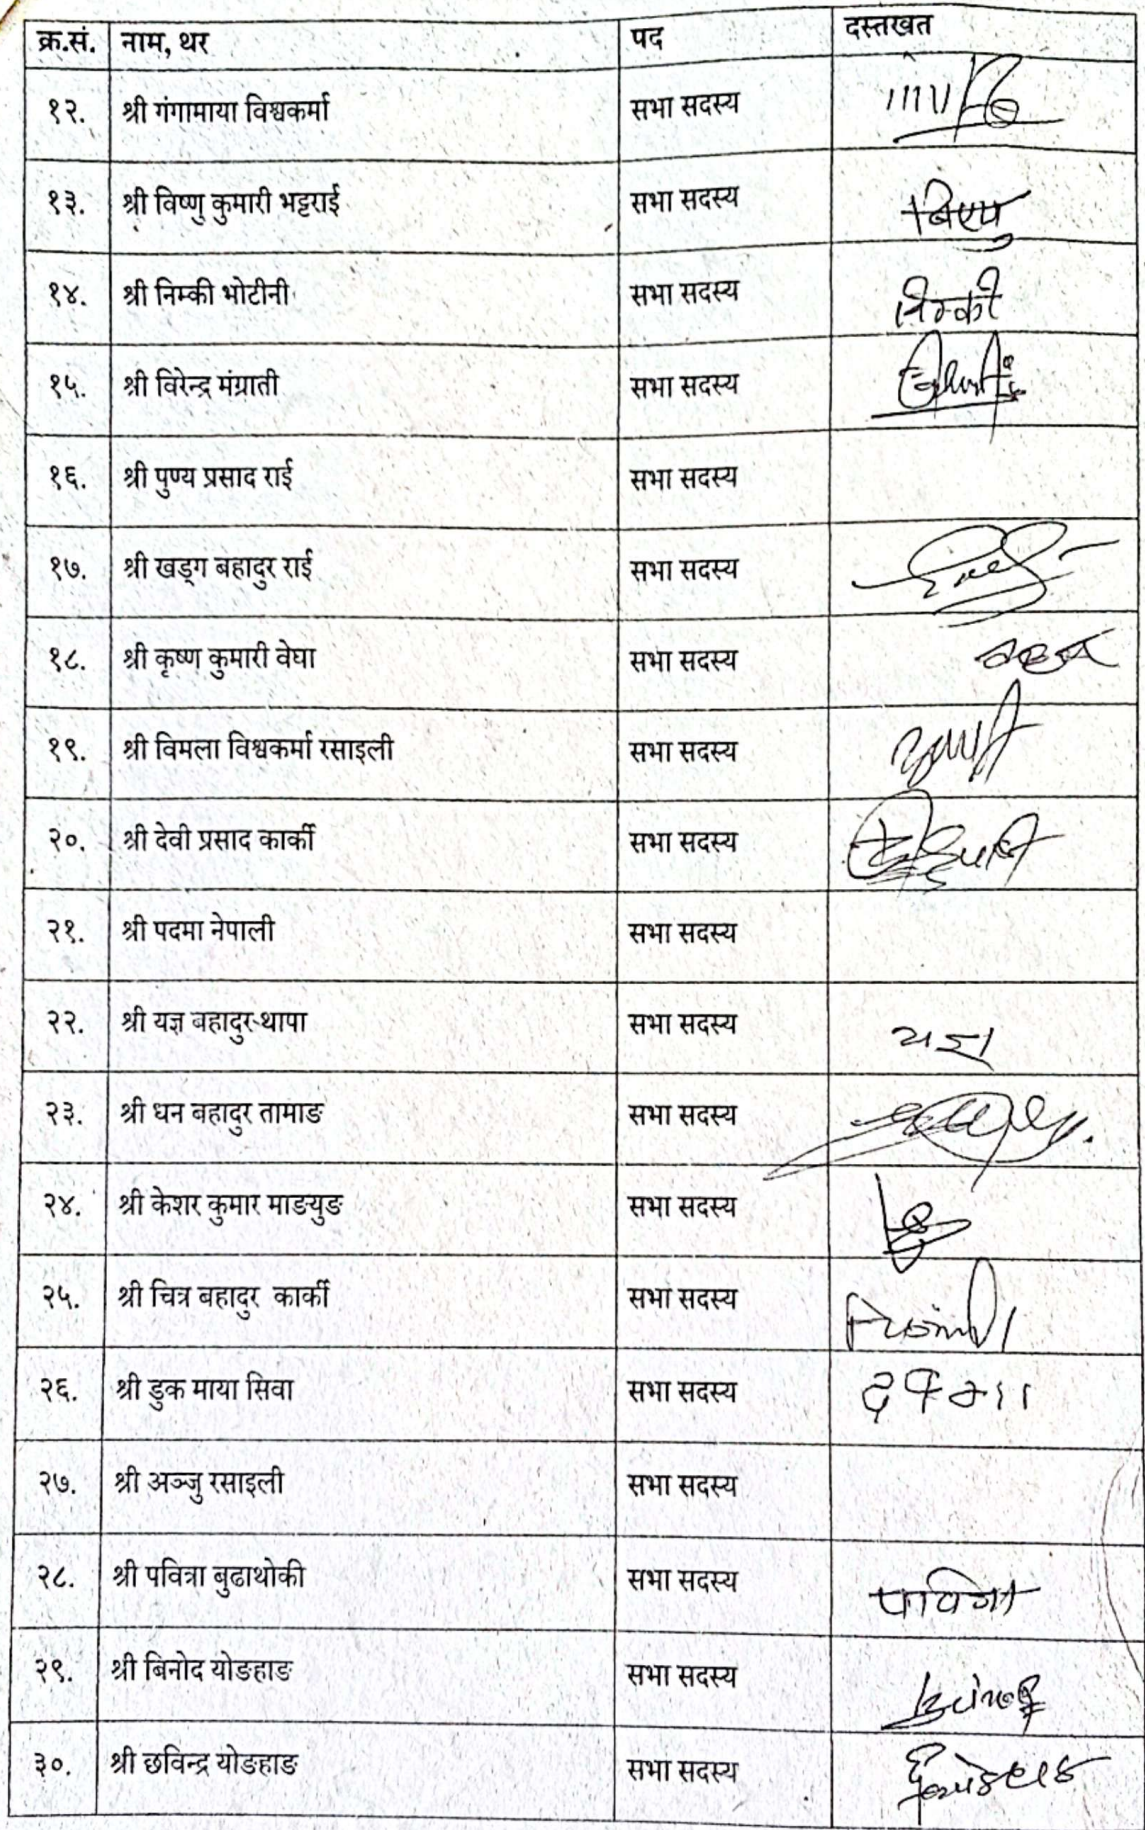 क्र.सं. नाम, थर पद दस्तखत
१२. श्री गंगामाया विश्वकर्मा सभा सदस्य
१३. श्री विष्णु कुमारी भट्टराई सभा सदस्य विष्णु
१४. श्री निम्की भोटीनी सभा सदस्य निम्की
१५. श्री विरेन्द्र मंग्राती सभा सदस्य
१६. श्री पुण्य प्रसाद राई सभा सदस्य
१७. श्री खड्ग बहादुर राई सभा सदस्य
१८. श्री कृष्ण कुमारी वेघा सभा सदस्य
१९. श्री विमला विश्वकर्मा रसाइली सभा सदस्य
२०. श्री देवी प्रसाद कार्की सभा सदस्य
२१. श्री पदमा नेपाली सभा सदस्य
२२. श्री यज्ञ बहादुर थापा सभा सदस्य
२३. श्री धन बहादुर तामाङ सभा सदस्य
२४. श्री केशर कुमार माङयुङ सभा सदस्य
२५. श्री चित्र बहादुर कार्की सभा सदस्य
२६. श्री डुक माया सिवा सभा सदस्य
२७. श्री अञ्जु रसाइली सभा सदस्य
२८. श्री पवित्रा बुढाथोकी सभा सदस्य
२९. श्री बिनोद योङहाङ सभा सदस्य
३०. श्री छविन्द्र योङहाङ सभा सदस्य